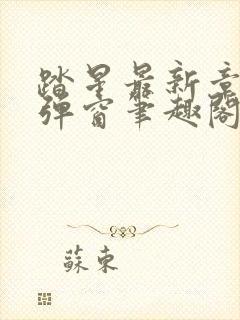 踏星最新章
弹窗笔趣阁
蘇東